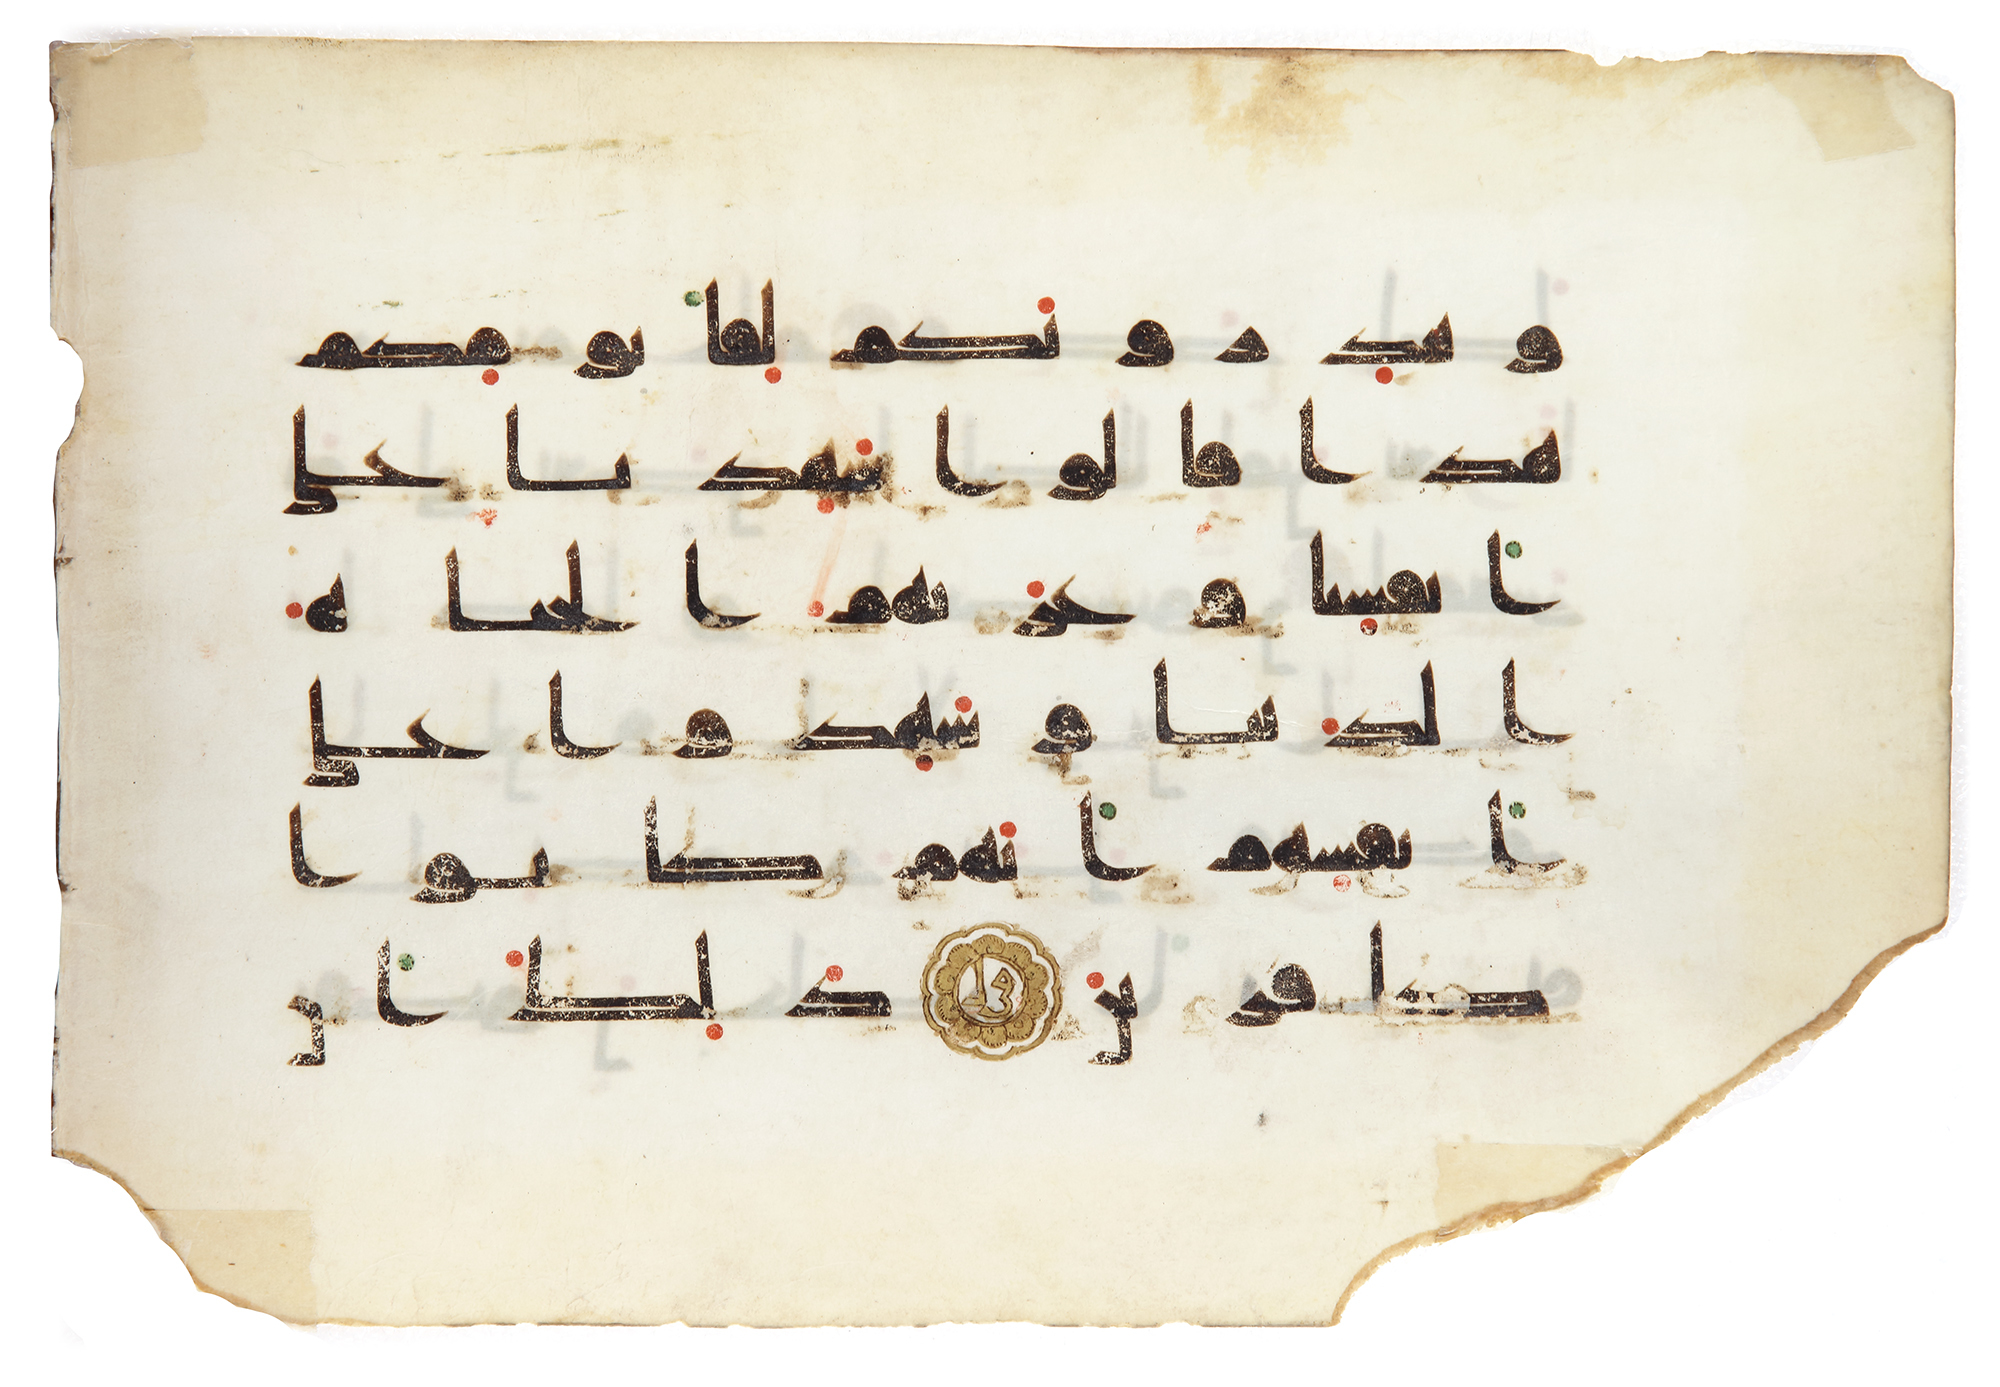 وينذرونكم لقا يومكم
هذا قالوا شهدنا على
انفسنا وغرتهم الحياة
الدنيا وشهدوا على
انفسهم انهم كانوا
كافرين ذلك ان